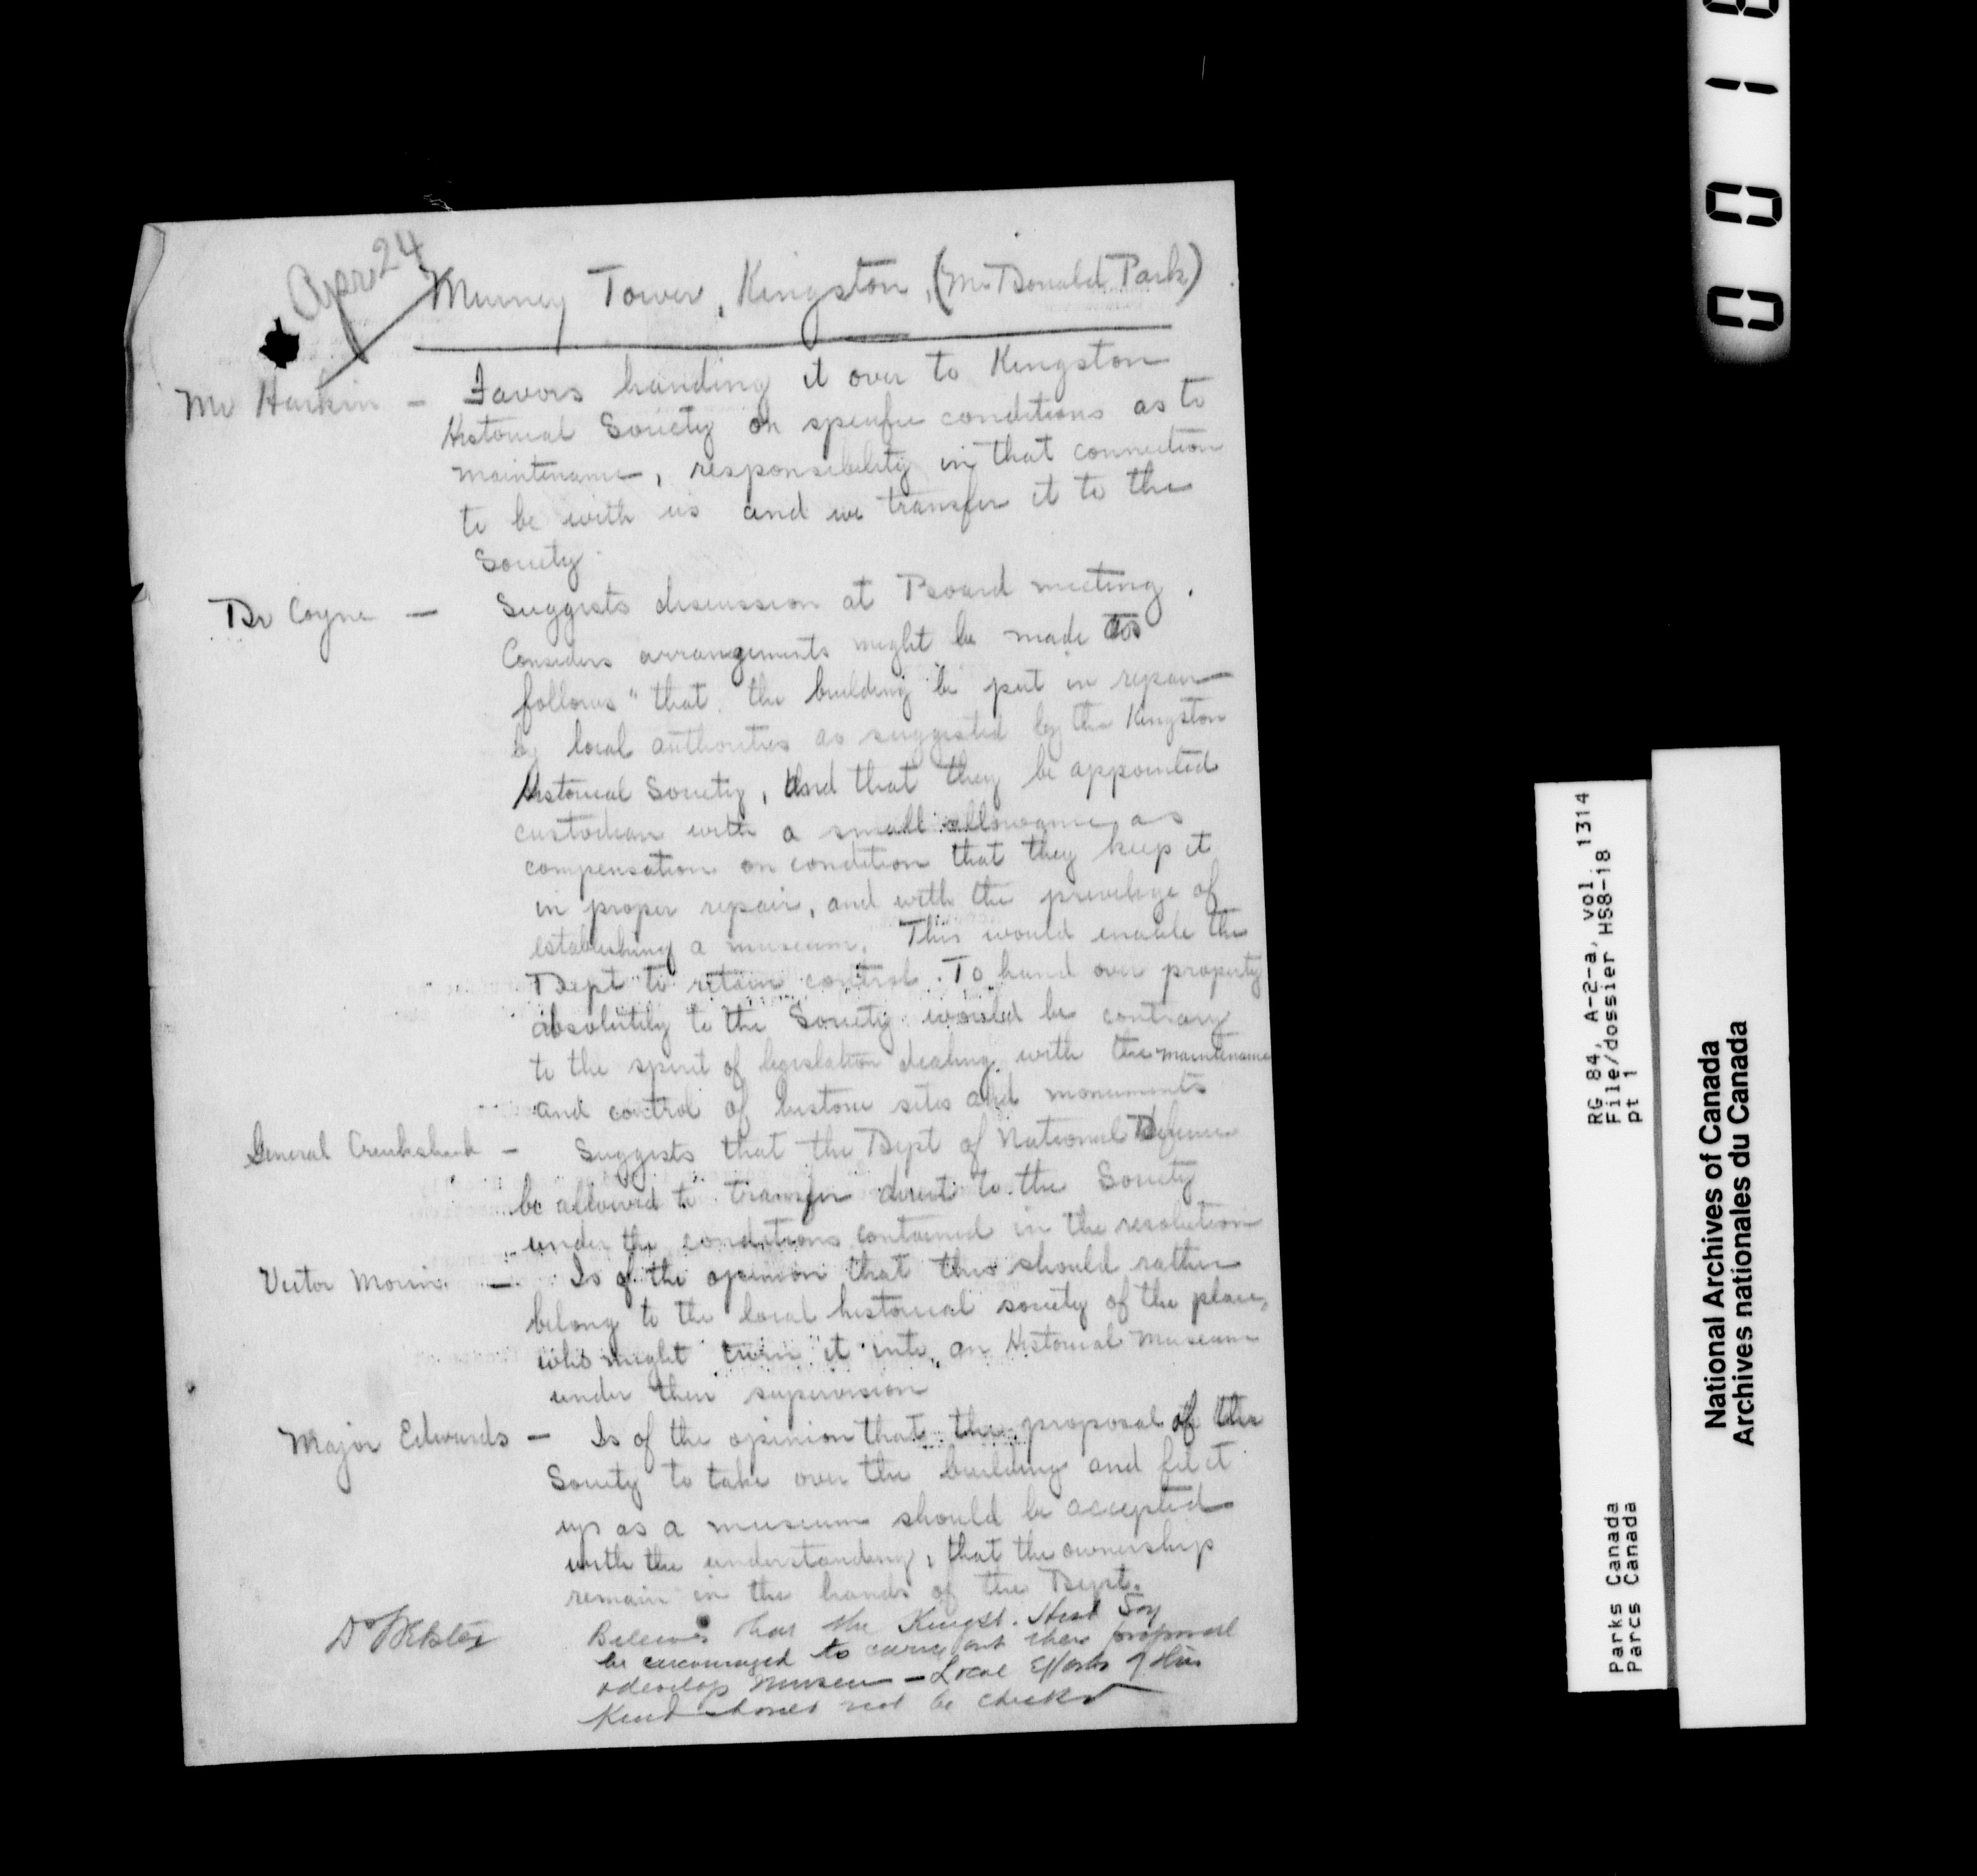 Apr 24
Murney Tower, Kingston, (McDonald Park)
Mr Harkin — Favors handing it over to Kingston
Historical Society on specific conditions as to
maintenance, responsibility in that connection
to be with us and we transfer it to the
Society.
Dr Coyne — Suggests discussion at Board meeting.
Considers arrangements might be made as
follows "that the building be put in repair
by local authorities as suggested by the Kingston
Historical Society, and that they be appointed
custodian with a small allowance as
compensation on condition that they keep it
in proper repair, and with the privilege of
establishing a museum. This would enable the
Dept to retain control. To hand over property
absolutely to the Society would be contrary
to the spirit of legislation dealing with the maintenance
and control of historic sites and monuments
General Cruikshank — Suggests that the Dept of National Defence
be allowed to transfer direct to the Society
under the conditions contained in the resolution
Victor Morin — Is of the opinion that this should rather
belong to the local historical society of the place,
who might turn it into an Historical Museum
under their supervision
Major Edwards — Is of the opinion that the proposal of the
Society to take over the building and fit it
up as a museum should be accepted
with the understanding, that the ownership
remain in the hands of the Dept.
Dr Webster Believes that the Kingst. Hist Soy
be encouraged to carry out their proposal
& develop Museum — Local Efforts of this
Kind should not be checked
0018
RG 84, A-2-a, vol. 1314
File/dossier HS8-18
pt 1
Parks Canada
Parcs Canada
National Archives of Canada
Archives nationales du Canada